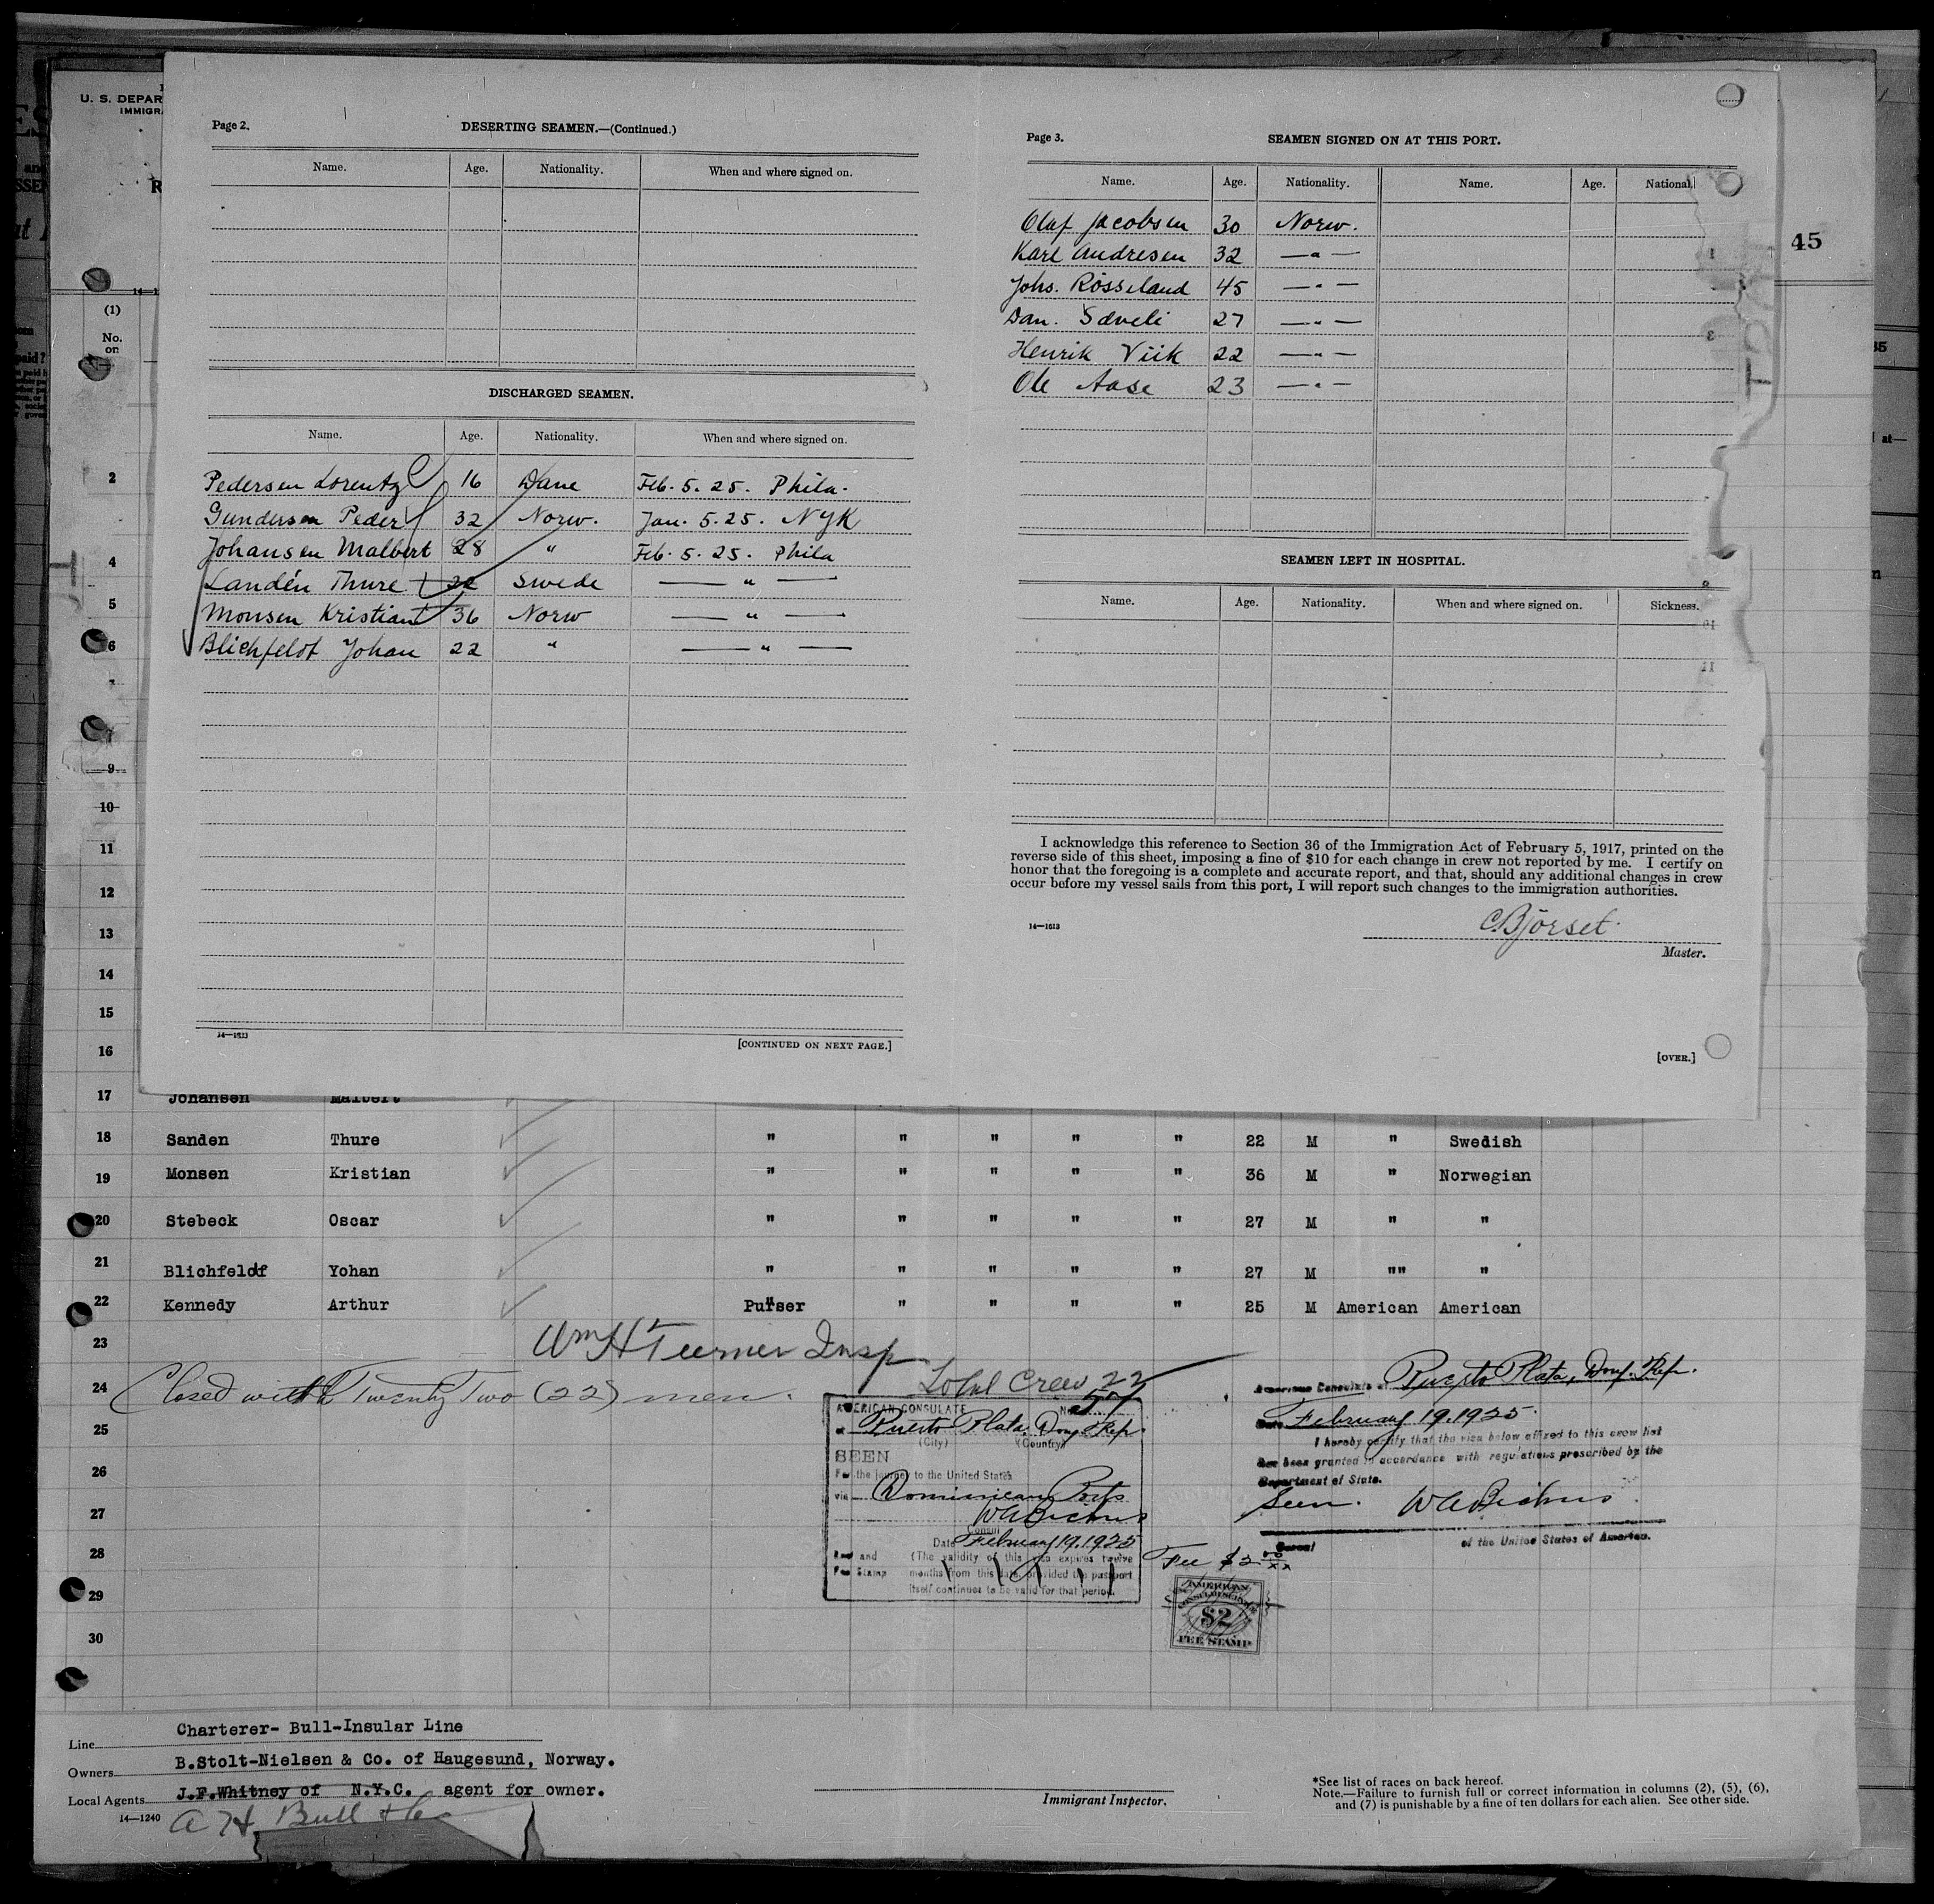 U. S. DEPAR
IMMIGRA
Page 2.
DESERTING SEAMEN.—(Continued.)
Name. Age. Nationality. When and where signed on.
DISCHARGED SEAMEN.
Name. Age. Nationality. When and where signed on.
Pedersen Lorentz 16 Dane Feb. 5. 25. Phila.
Gundersen Peder 32 Norw. Jan. 5. 25. NYK
Johansen Malbert 28 " Feb. 5. 25. Phila
Landén Thure 22 Swede — " —
Monsen Kristian 36 Norw — " —
Blichfeldt Johan 22 " — " —
14—1613
[CONTINUED ON NEXT PAGE.]
Page 3.
SEAMEN SIGNED ON AT THIS PORT.
Name. Age. Nationality. Name. Age. National
Olaf Jacobsen 30 Norw.
Karl Andresen 32 — " —
Johs. Rösseland 45 — " —
Dan. Sæveli 27 — " —
Henrik Viik 22 — " —
Ole Aase 23 — " —
SEAMEN LEFT IN HOSPITAL.
Name. Age. Nationality. When and where signed on. Sickness.
I acknowledge this reference to Section 36 of the Immigration Act of February 5, 1917, printed on the
reverse side of this sheet, imposing a fine of $10 for each change in crew not reported by me. I certify on
honor that the foregoing is a complete and accurate report, and that, should any additional changes in crew
occur before my vessel sails from this port, I will report such changes to the immigration authorities.
C. Bjorset.
14—1613
Master.
[OVER.]
45
(1)
No.
on
2
4
5
6
7
9
10
11
12
13
14
15
16
17 Johansen Malbert
18 Sanden Thure " " " " " 22 M " Swedish
19 Monsen Kristian " " " " " 36 M " Norwegian
20 Stebeck Oscar " " " " " 27 M " "
21 Blichfeldt Yohan " " " " " 27 M "" "
22 Kennedy Arthur Purser " " " " 25 M American American
23
Wm H Turner Insp
24 Closed with Twenty Two (22) men.
Total Crew 22
25
26
27
28
29
30
AMERICAN CONSULATE No. 57
at Puerto Plata, Dom. Rep.
(City) (Country)
SEEN
For the journey to the United States
via Dominican Ports
W A Bickers
Consul
Date February 19, 1925
(The validity of this visa expires twelve
months from this date, provided the passport
itself continues to be valid for that period.
Fee Stamp
American Consulate at Puerto Plata, Dom. Rep.
Date February 19, 1925.
I hereby certify that the visa below affixed to this crew list
has been granted in accordance with regulations prescribed by the
Department of State.
Seen. W A Bickers
Consul of the United States of America.
Fee $2 00/xx
AMERICAN
CONSULAR SERVICE
$2
FEE STAMP
Line Charterer- Bull-Insular Line
Owners B.Stolt-Nielsen & Co. of Haugesund, Norway.
Local Agents J.F.Whitney of N.Y.C. agent for owner.
14—1240
A H Bull & Co
Immigrant Inspector.
*See list of races on back hereof.
Note.—Failure to furnish full or correct information in columns (2), (5), (6),
and (7) is punishable by a fine of ten dollars for each alien. See other side.